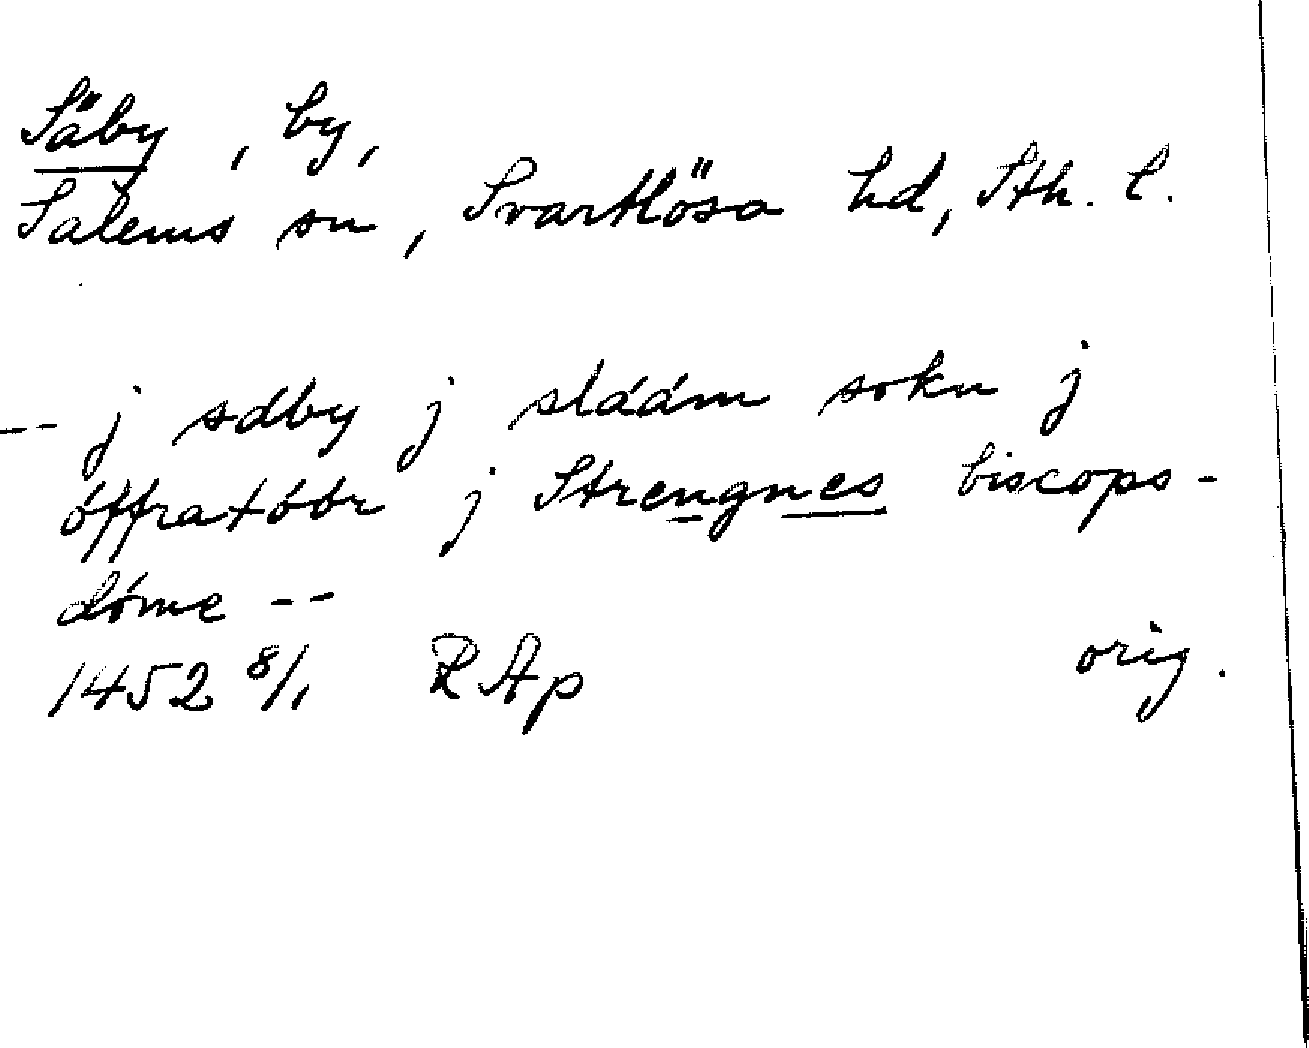 Säby, by,
Salems sn, Svartlösa hd, Sth. l.
-- j sáby j sláám sokn j
óffratóór j Strengnes biscops-
dóme --
1452 8/1 RAp orig.